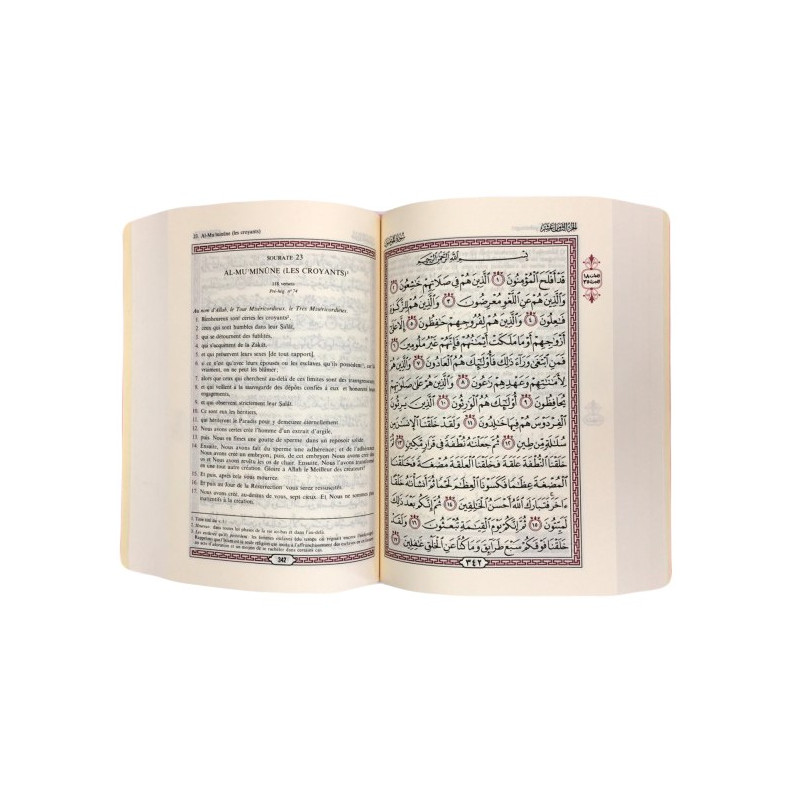 23. Al-Mu'minûne (les croyants)
SOURATE 23
AL-MU'MINÛNE (LES CROYANTS)¹
118 versets
Pré-hég. n° 74
Au nom d'Allah, le Tout Miséricordieux, le Très Miséricordieux.
1. Bienheureux sont certes les croyants
2. ceux qui sont humbles dans leur Ṣalât,
3. qui se détournent des futilités,
4. qui s'acquittent de la Zakât,
5. et qui préservent leurs sexes [de tout rapport],
6. si ce n'est qu'avec leurs épouses ou les esclaves qu'ils possèdent, car là
vraiment, on ne peut les blâmer;
7. alors que ceux qui cherchent au-delà de ces limites sont des transgresseurs;
8. et qui veillent à la sauvegarde des dépôts confiés à eux et honorent leurs
engagements,
9. et qui observent strictement leur Ṣalât.
10. Ce sont eux les héritiers,
11. qui hériteront le Paradis pour y demeurer éternellement.
12. Nous avons certes créé l'homme d'un extrait d'argile,
13. puis Nous en fîmes une goutte de sperme dans un reposoir solide.
14. Ensuite, Nous avons fait du sperme une adhérence; et de l'adhérence
Nous avons créé un embryon; puis, de cet embryon Nous avons créé des
os et Nous avons revêtu les os de chair. Ensuite, Nous l'avons transformé
en une tout autre création. Gloire à Allah le Meilleur des créateurs!
15. Et puis, après cela vous mourrez.
16. Et puis au Jour de la Résurrection vous serez ressuscités.
17. Nous avons créé, au-dessus de vous, sept cieux. Et Nous ne sommes pas
inattentifs à la création.
342
بِسْمِ اللَّهِ الرَّحْمَٰنِ الرَّحِيمِ
قَدْ أَفْلَحَ الْمُؤْمِنُونَ ١ الَّذِينَ هُمْ فِي صَلَاتِهِمْ خَاشِعُونَ ٢
وَالَّذِينَ هُمْ عَنِ اللَّغْوِ مُعْرِضُونَ ٣ وَالَّذِينَ هُمْ لِلزَّكَاةِ
فَاعِلُونَ ٤ وَالَّذِينَ هُمْ لِفُرُوجِهِمْ حَافِظُونَ ٥ إِلَّا عَلَىٰ
أَزْوَاجِهِمْ أَوْ مَا مَلَكَتْ أَيْمَانُهُمْ فَإِنَّهُمْ غَيْرُ مَلُومِينَ ٦
فَمَنِ ابْتَغَىٰ وَرَاءَ ذَٰلِكَ فَأُولَٰئِكَ هُمُ الْعَادُونَ ٧ وَالَّذِينَ هُمْ
لِأَمَانَاتِهِمْ وَعَهْدِهِمْ رَاعُونَ ٨ وَالَّذِينَ هُمْ عَلَىٰ صَلَوَاتِهِمْ
يُحَافِظُونَ ٩ أُولَٰئِكَ هُمُ الْوَارِثُونَ ١٠ الَّذِينَ يَرِثُونَ
الْفِرْدَوْسَ هُمْ فِيهَا خَالِدُونَ ١١ وَلَقَدْ خَلَقْنَا الْإِنسَانَ مِن
سُلَالَةٍ مِّن طِينٍ ١٢ ثُمَّ جَعَلْنَاهُ نُطْفَةً فِي قَرَارٍ مَّكِينٍ ١٣ ثُمَّ
خَلَقْنَا النُّطْفَةَ عَلَقَةً فَخَلَقْنَا الْعَلَقَةَ مُضْغَةً فَخَلَقْنَا
الْمُضْغَةَ عِظَامًا فَكَسَوْنَا الْعِظَامَ لَحْمًا ثُمَّ أَنشَأْنَاهُ خَلْقًا
آخَرَ فَتَبَارَكَ اللَّهُ أَحْسَنُ الْخَالِقِينَ ١٤ ثُمَّ إِنَّكُم بَعْدَ ذَٰلِكَ
لَمَيِّتُونَ ١٥ ثُمَّ إِنَّكُمْ يَوْمَ الْقِيَامَةِ تُبْعَثُونَ ١٦ وَلَقَدْ
خَلَقْنَا فَوْقَكُمْ سَبْعَ طَرَائِقَ وَمَا كُنَّا عَنِ الْخَلْقِ غَافِلِينَ ١٧
٣٤٢